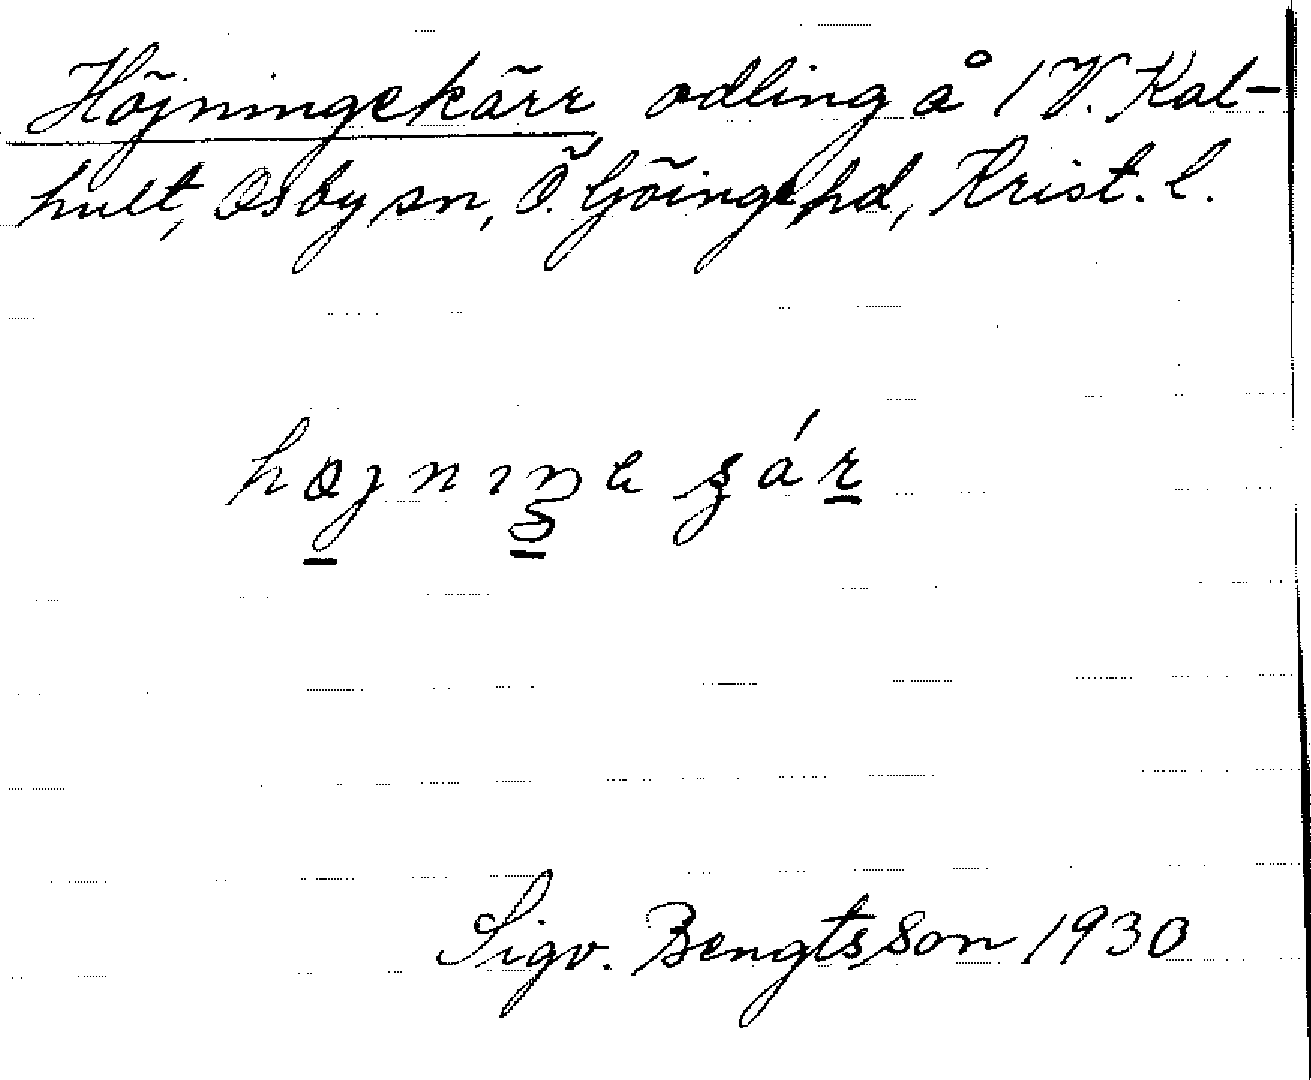 Höjningekärr odling å 1 V. Kal-
hult, Osby sn, Ö. Göinge hd, Krist. l.
Sigv. Bengtsson 1930